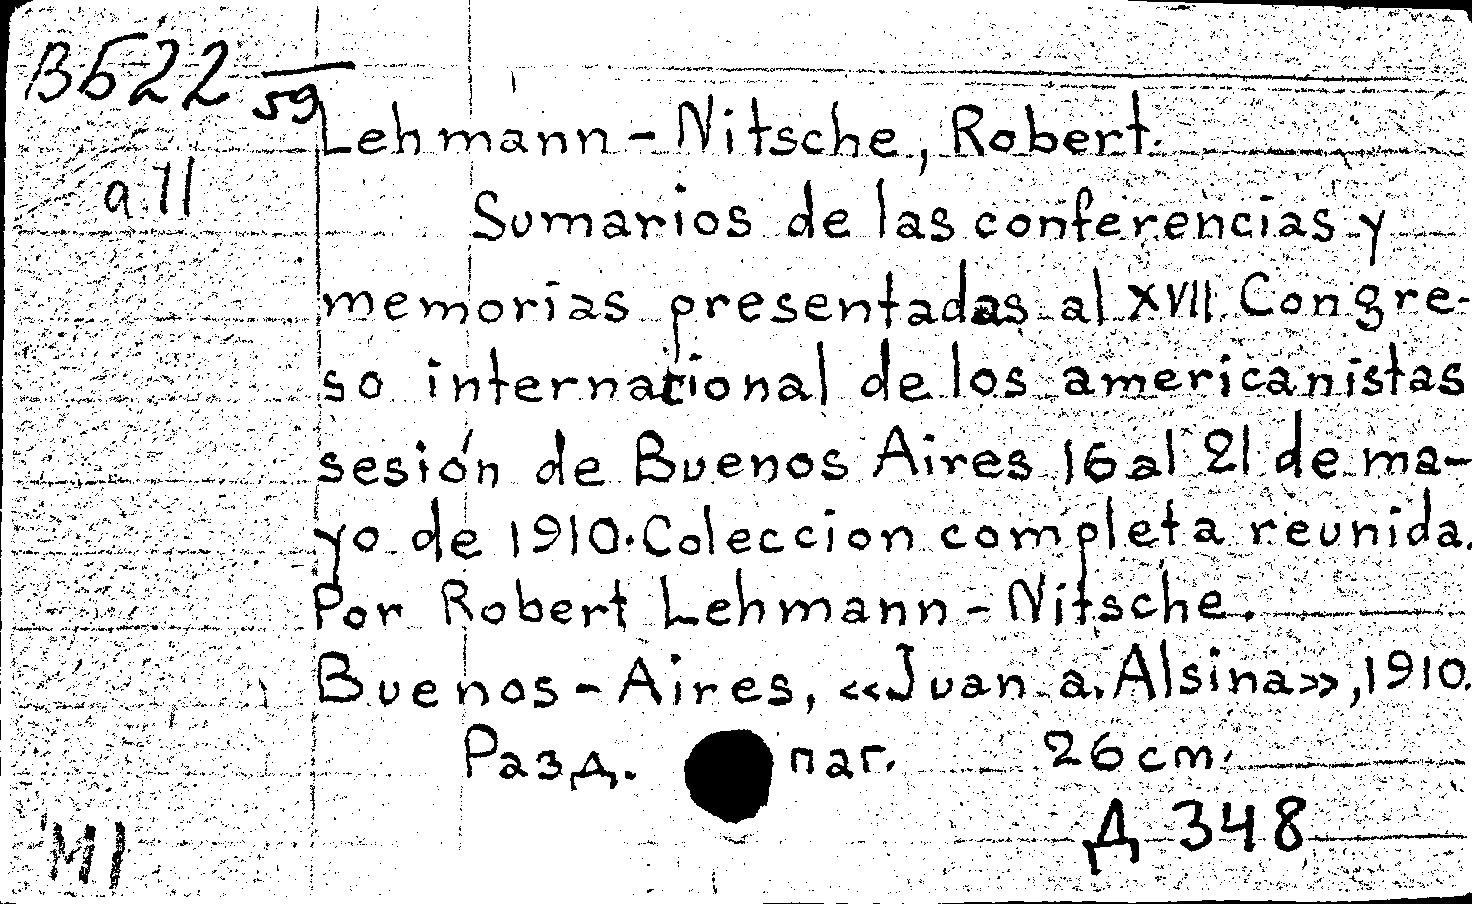 ВБ22 —
59
Lehmann-Nitsche, Robert.
а 11
Sumarios de las conferencias y
memorias presentadas al XVII Congre-
so internacional de los americanistas
sesión de Buenos Aires 16 al 21 de ma-
yo de 1910. Coleccion completa reunida.
Por Robert Lehmann-Nitsche.
Buenos-Aires, «Juan a. Alsina», 1910.
Разд. паг. 26 cm.
Д 348
M1